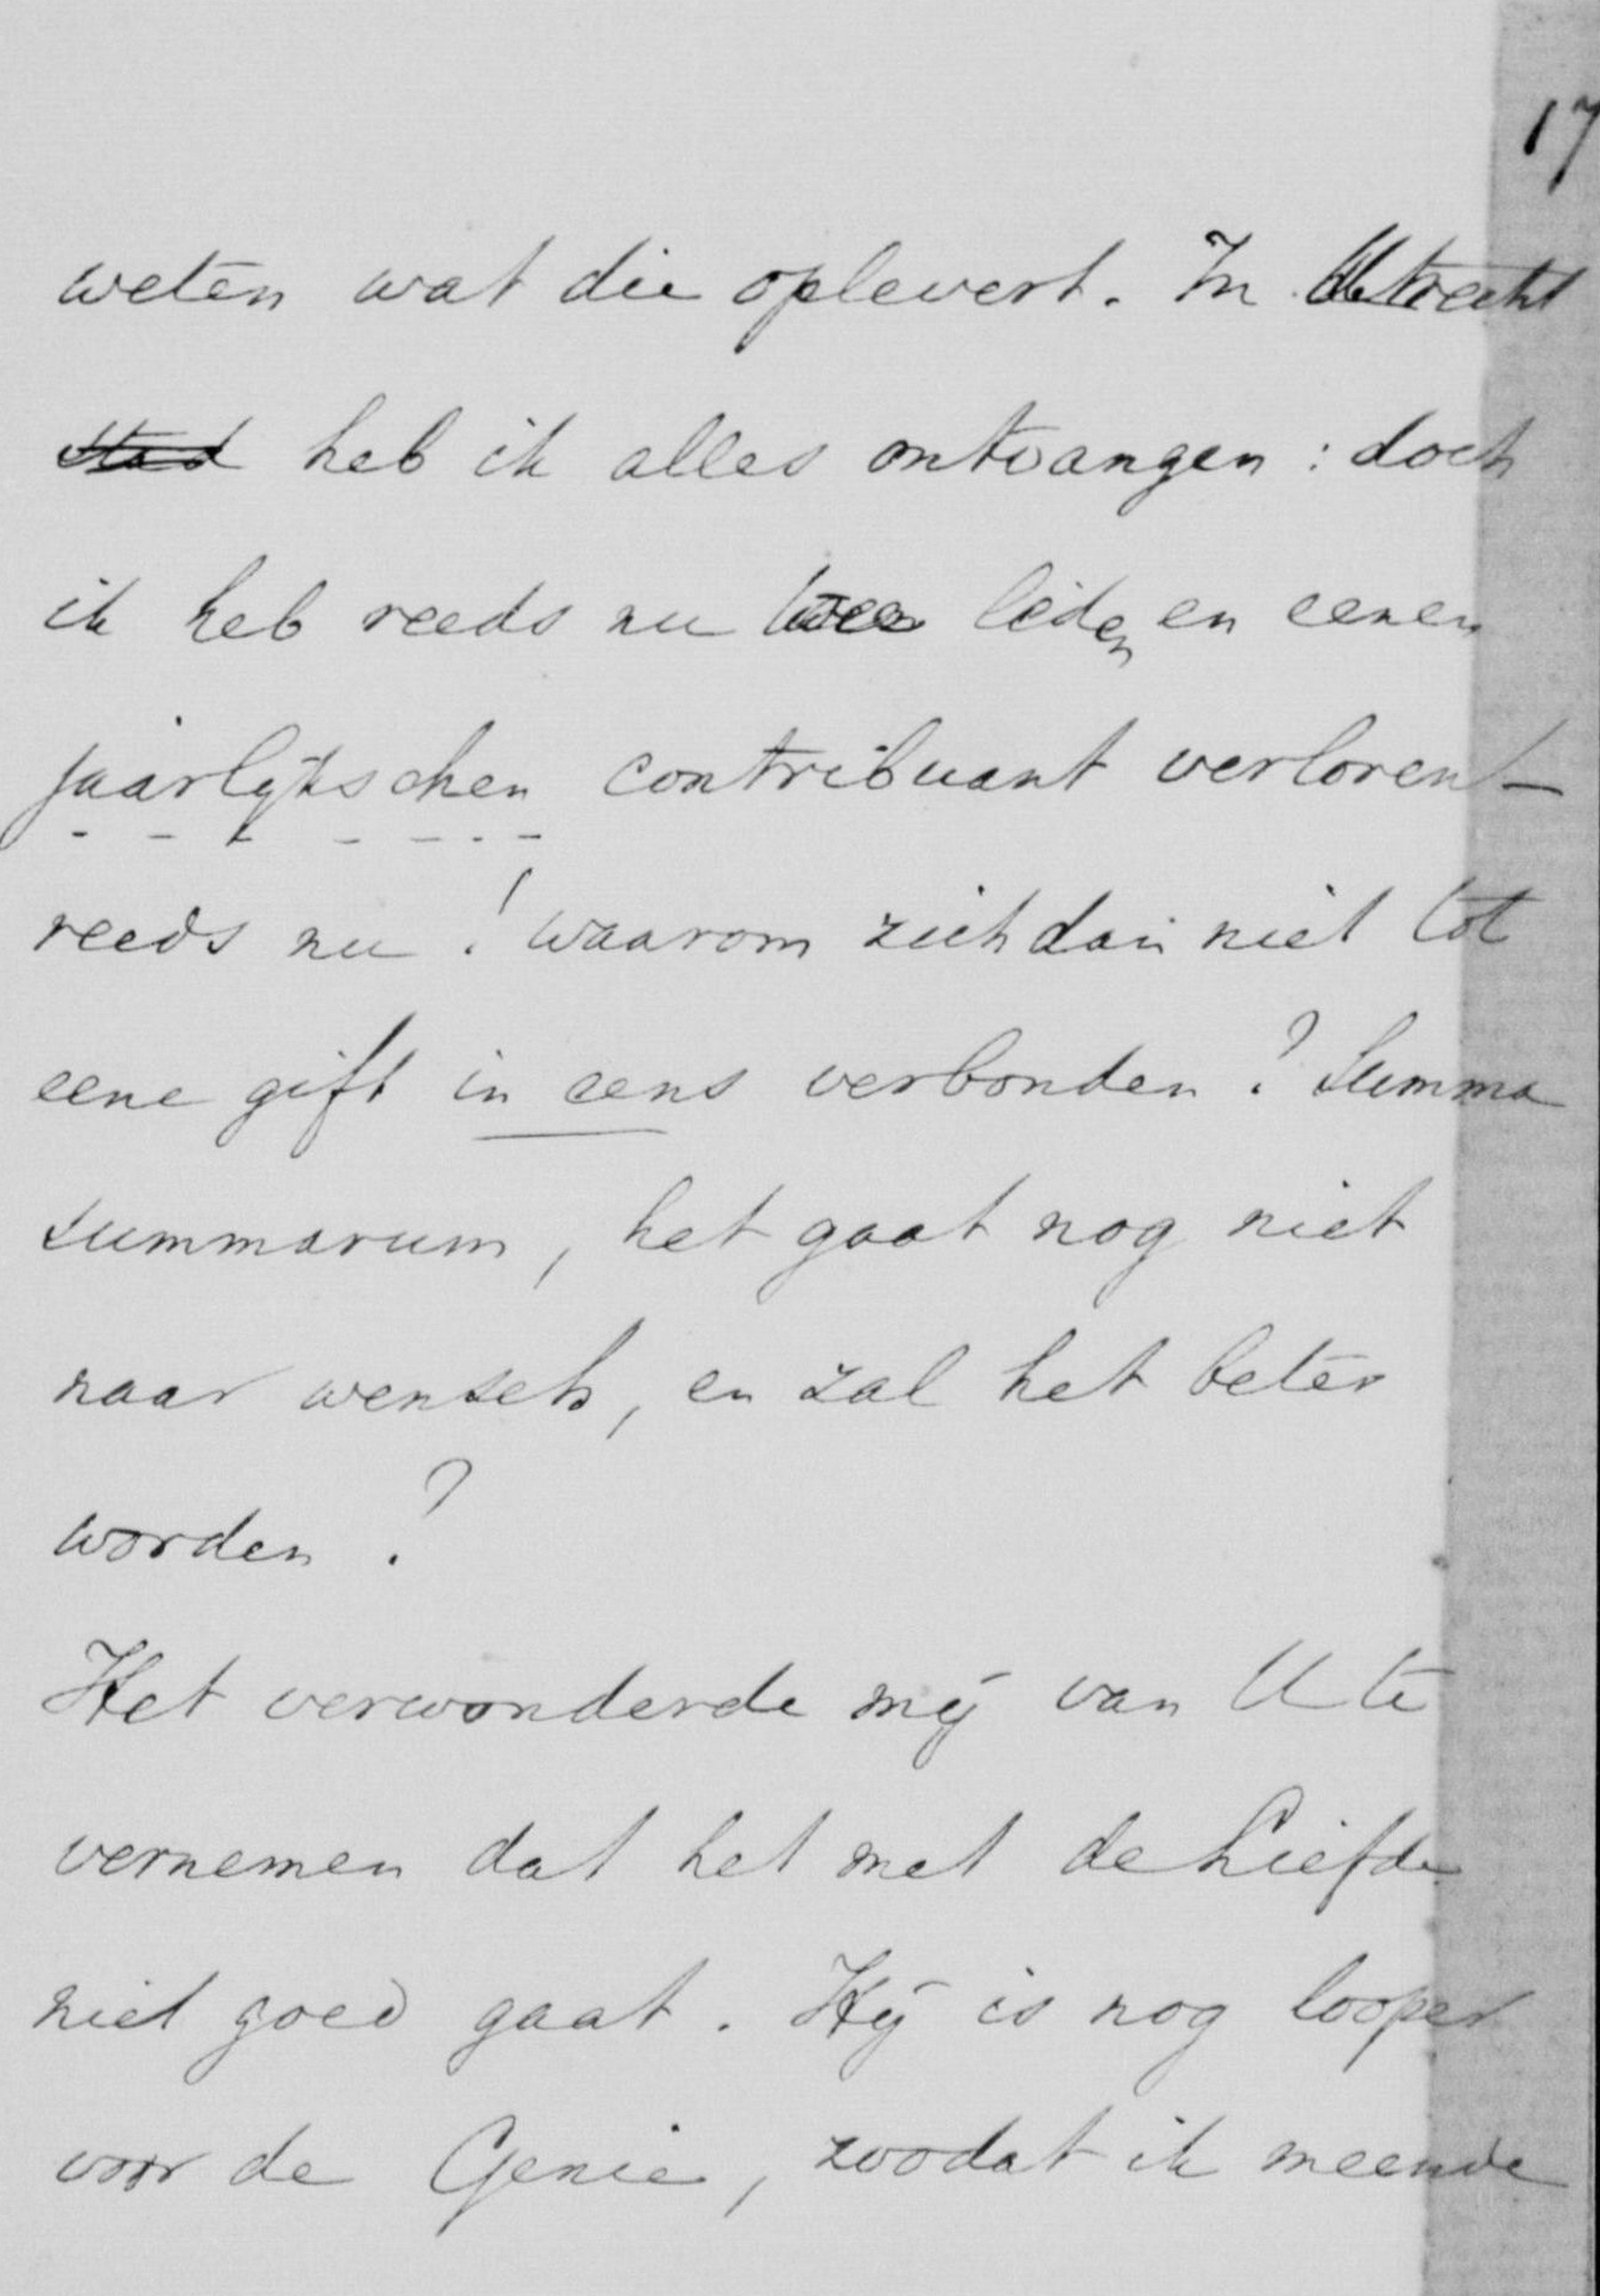 17
weten wat die oplevert. In Utrecht
stad heb ik alles ontvangen : doch
ik heb reeds nu twee leden en eenen
jaarlijkschen contribuant verloren -
reeds nu ! waarom zich dan niet tot
eene gift in eens verbonden ? Summa
summarum, het gaat nog niet
naar wensch, en zal het beter
worden ?
Het verwonderde mij van U te
vernemen dat het met de Liefde
niet goed gaat. Hij is nog looper
voor de Genie, zoodat ik meende